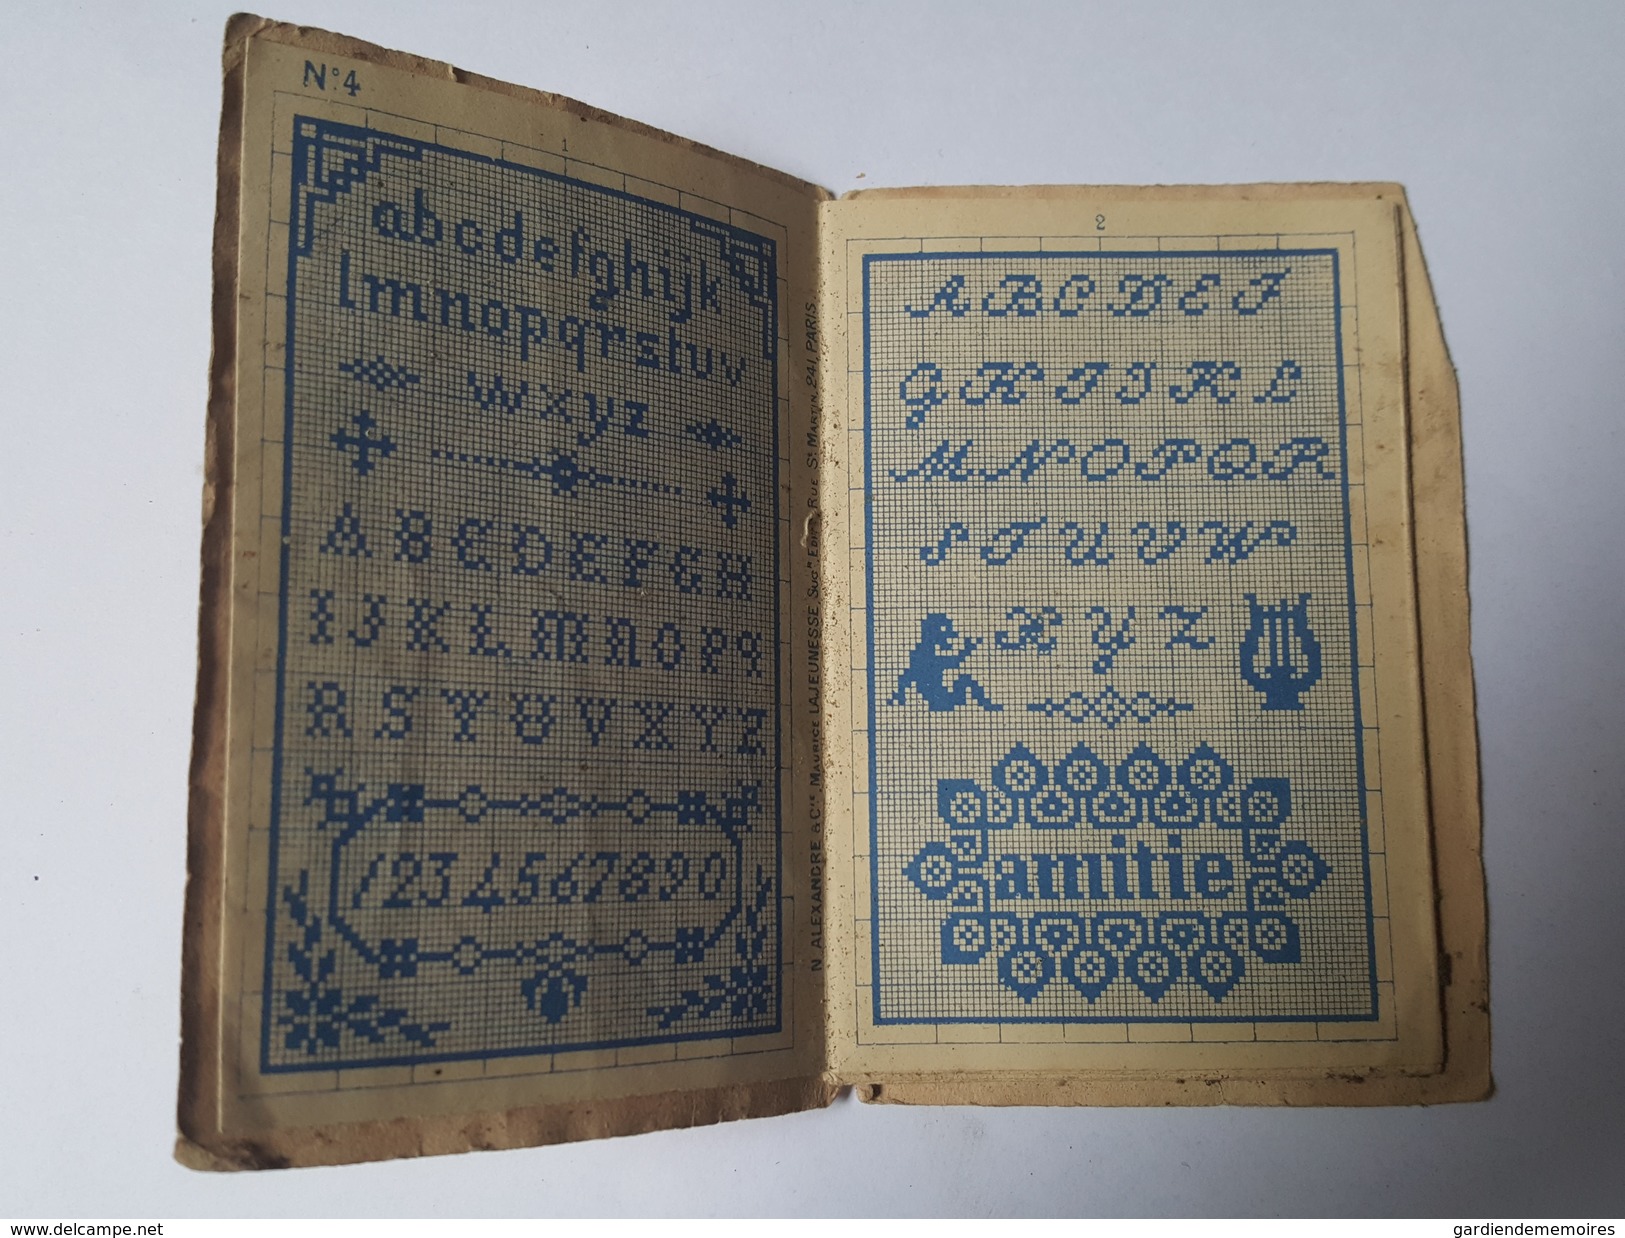 N° 4
1
abcdefghijk
lmnopqrstuv
wxyz
ABCDEFGH
IJKLMNOPQ
RSTUVXYZ
1234567890
N. ALEXANDRE & Cie MAURICE LAJEUNESSE Sucr EDIT. RUE St MARTIN 241, PARIS
2
ABCDEF
GHIJKL
MNOPQR
STUVW
XYZ
amitie
www.delcampe.net
gardiendememoires